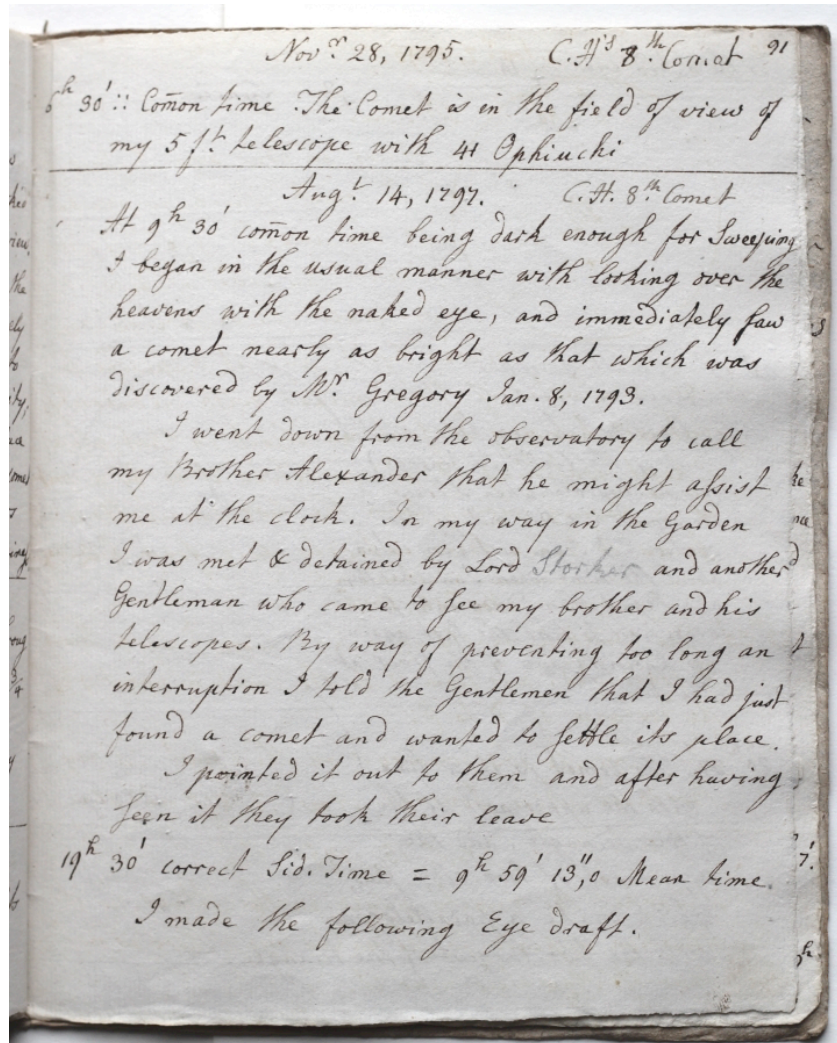 Nov.r 28, 1795. C. H's 8.th Comet 91
6h 30':: Com̄on time. The Comet is in the field of view of
my 5 ft telescope with 41 Ophiuchi
Aug.t 14, 1797. C. H. 8.th Comet
At 9h 30' com̄on time being dark enough for Sweeping
I began in the usual manner with looking over the
heavens with the naked eye, and immediately saw
a comet nearly as bright as that which was
discovered by Mr. Gregory Jan. 8, 1793.
I went down from the observatory to call
my Brother Alexander that he might assist
me at the clock. In my way in the Garden
I was met & detained by Lord Storker and another
Gentleman who came to see my brother and his
telescopes. By way of preventing too long an
interruption I told the Gentlemen that I had just
found a comet and wanted to settle its place.
I pointed it out to them and after having
seen it they took their leave
19h 30' correct Sid. Time = 9h 59' 13",0 Mean time.
I made the following Eye draft.